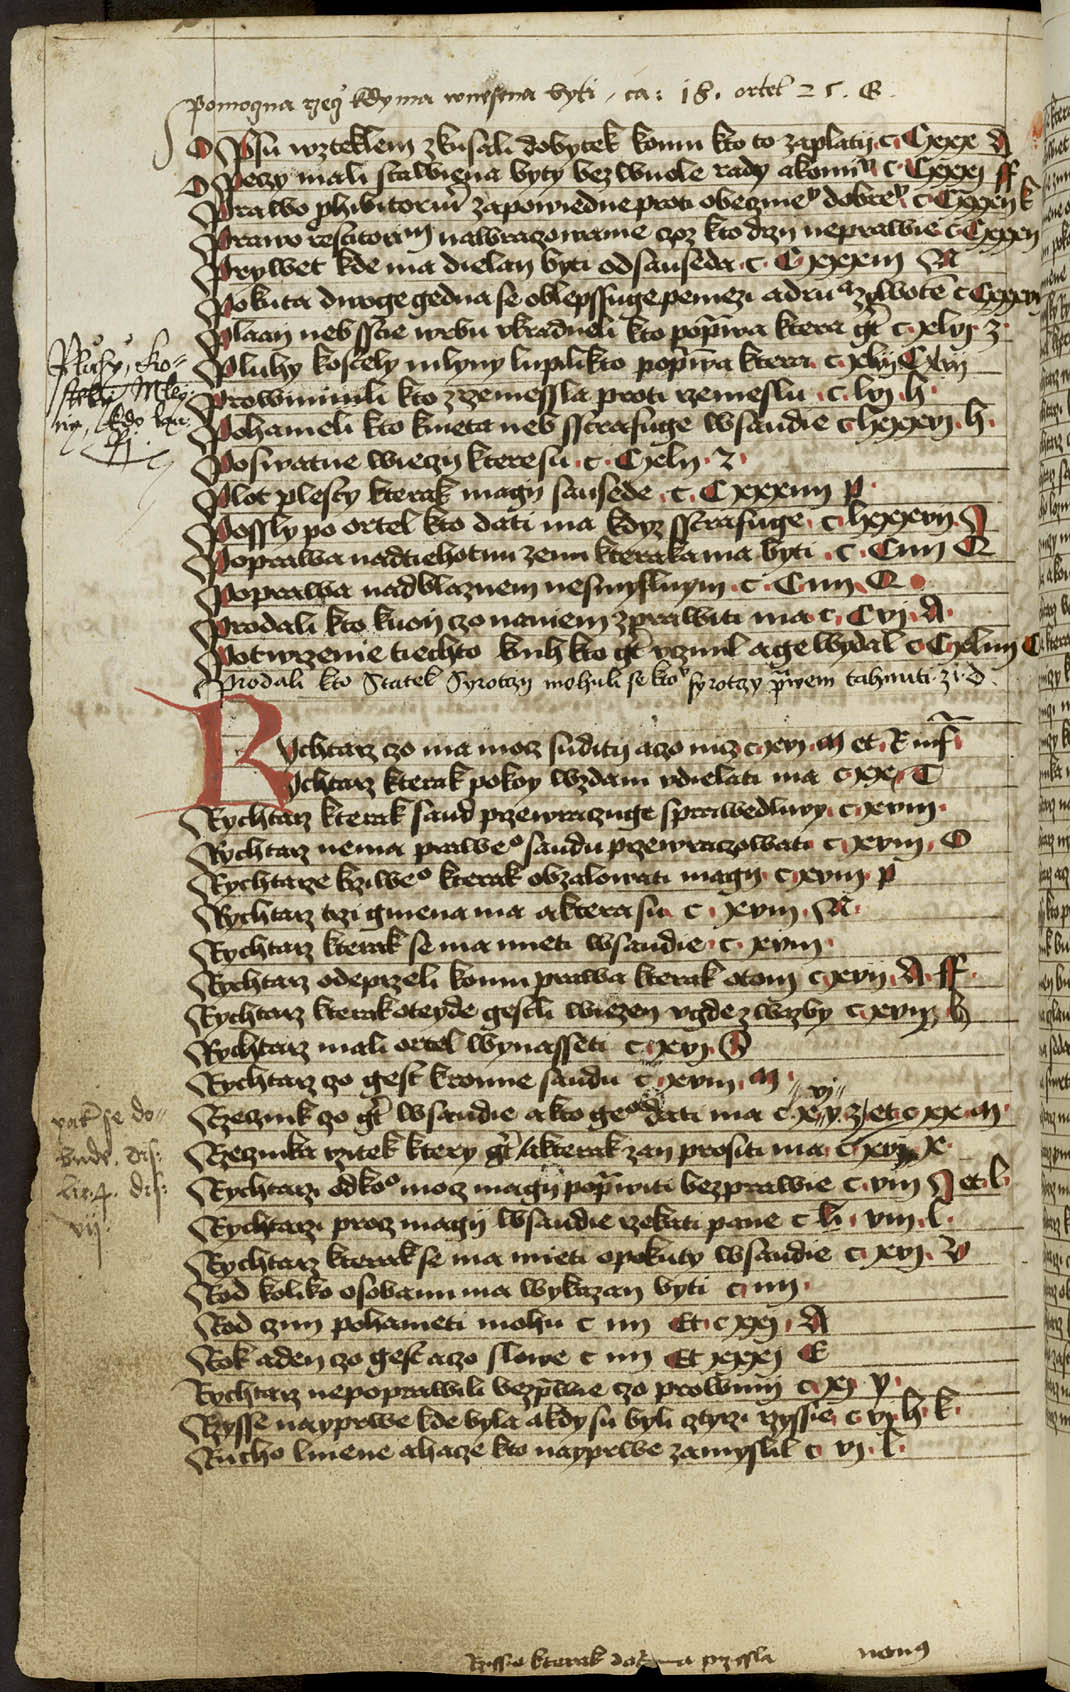 Pomogna rzeg kdy ma wnesena byti, ca: 18. ortel 25. G.
O Psu wzteklem zkusali dobytek komu kto to zaplatij c Cxxx A
O Peczy mali stawiena byty bez wuole rady a komu c Cxxxj ff
Prawo phibitorum zapowiedne proti obecznie dobre c Cxxxij k
Prawo restitorum nawraczowanie czoz kto drzy neprawie c Cxxxij
Prywet kde ma dielan byti od sauseda c Cxxxiij M
Pokuta dwoge gedna se oblepssuge peniezi a druha ziwote c Cxxxvj
Plaan neb sstie wrbu vkradneli kto poprawa ktera gt c xlvj z
Pluhy kostely mlyny lupil kto poprawa ktera c xlvij Cxvij
Prowinnili kto z rzemessla proti rzemeslu c lvj h
Pohaneli kto kmeta neb sstrafuge wsaudie c lxxxvj h
Poswatne wieczy ktere su c Cxlij z
Plot plesty kterak magij sausede c Cxxxiiij p
Possly po ortel kto dati ma kdyz sstrafuge c lxxxvij
Poprawa nad tiehotnu zenu kteraka ma byti c Ciiij Q
Poprawa nad blaznem nesmyslnym c Ciiij Q
Prodali kto kuon czo na niem zprawiti ma c Cvj A
Potwrzenie tiechto knih kto gt vczinil a ge wydal c Cxliiij C
Prodali kto statek syrotczy mohuli se ko syrotczy prwem tahnuti zi d
Rychtarz czo ma mocz suditij a czo nicz c xvj m et R inf
Rychtarz kterak pokoy wzdani vdielati ma c xx T
Rychtarz kterak saud przewraczuge sprawedliwy c xviij
Rychtarz nema praweo saudu przewraczowati c xviij O
Rychtarze krziweo kterak obzalowati magij c xviij p
Rychtarz trzi gmena ma a ktera su c xviij M
Rychtarz kterak se ma mieti wsaudie c xviij
Rychtarz odeprzeli komu prawa kterak o tom c xvij A ff
Rychtarz kterak oteyde gestli wiezen vgde z wazby c xvij h
Rychtarz mali ortel wynasseti c xvj
Rychtarz czo gest kromie saudu c xviij m
Rzecznik czo gt wsaudie a kto geo dati ma c xvj z et c xx m
Rzecznika vzitek ktery gt a kterak zan prositi ma c xvj x
Rychtarzi odkoo mocz magij poprawiti bezprawie c viij et l
Rychtarzi procz magij wsaudie rzekati pane c li viij l
Rychtarz kterak se ma mieti o pokuty wsaudie c xvj
Rod koliko osobami ma wykazan byti c iiij
Rod czim pohaneti mohu c iiij Et c xxj A
Rok a den czo gest a czo slowe c iiij Et xxxj E
Rychtarz nepoprawili bezprawie czo prowini c xj y
Rzysse nayprwe kde byla a kdy su byli cztyrzi rzyssie c vj h k
Rucho lniene a hacze kto nayprwe zamyslil c vj l
Pluhy, Kostely, Mleyny, kdy
vak se do
bude. dis:
lit. 4. dis:
vij
Rzissie kterak przissla
nonus